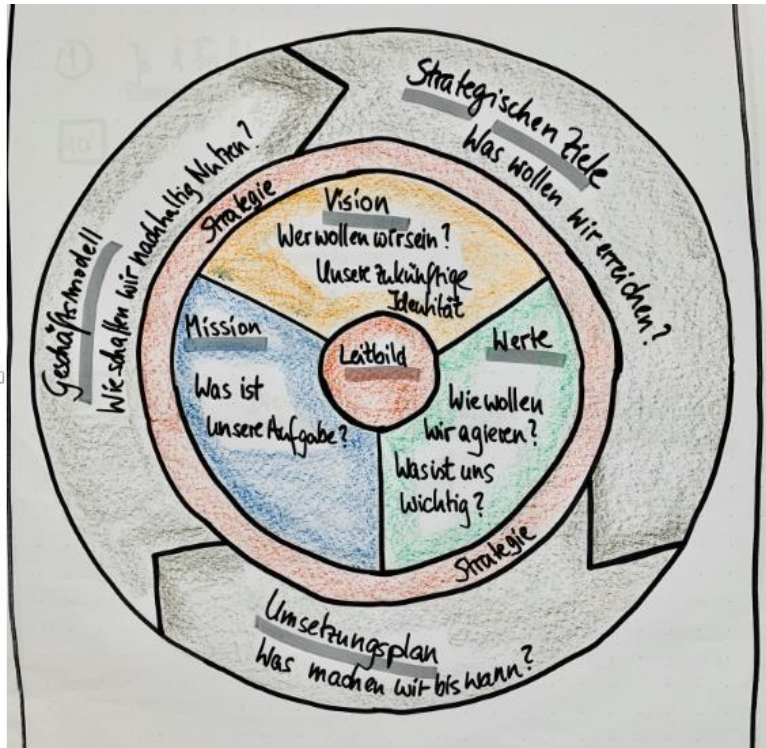 Strategischen Ziele
Was wollen wir erreichen?
Geschäftsmodell
Wie schaffen wir nachhaltig Nutzen?
Strategie
Vision
Wer wollen wir sein?
Unsere zukünftige
Identität
Mission
Was ist
unsere Aufgabe?
Leitbild
Werte
Wie wollen
wir agieren?
Was ist uns
wichtig?
Strategie
Umsetzungsplan
Was machen wir bis wann?